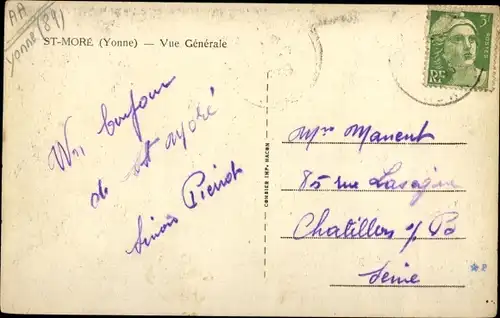 AA
Yonne (89)
ST-MORÉ (Yonne) — Vue Générale
3F
POSTES
RF
Un bonjour
de St Moré
Pierrot
COMBIER IMP. MACON
Manent
85 rue
Chatillon s/
Seine